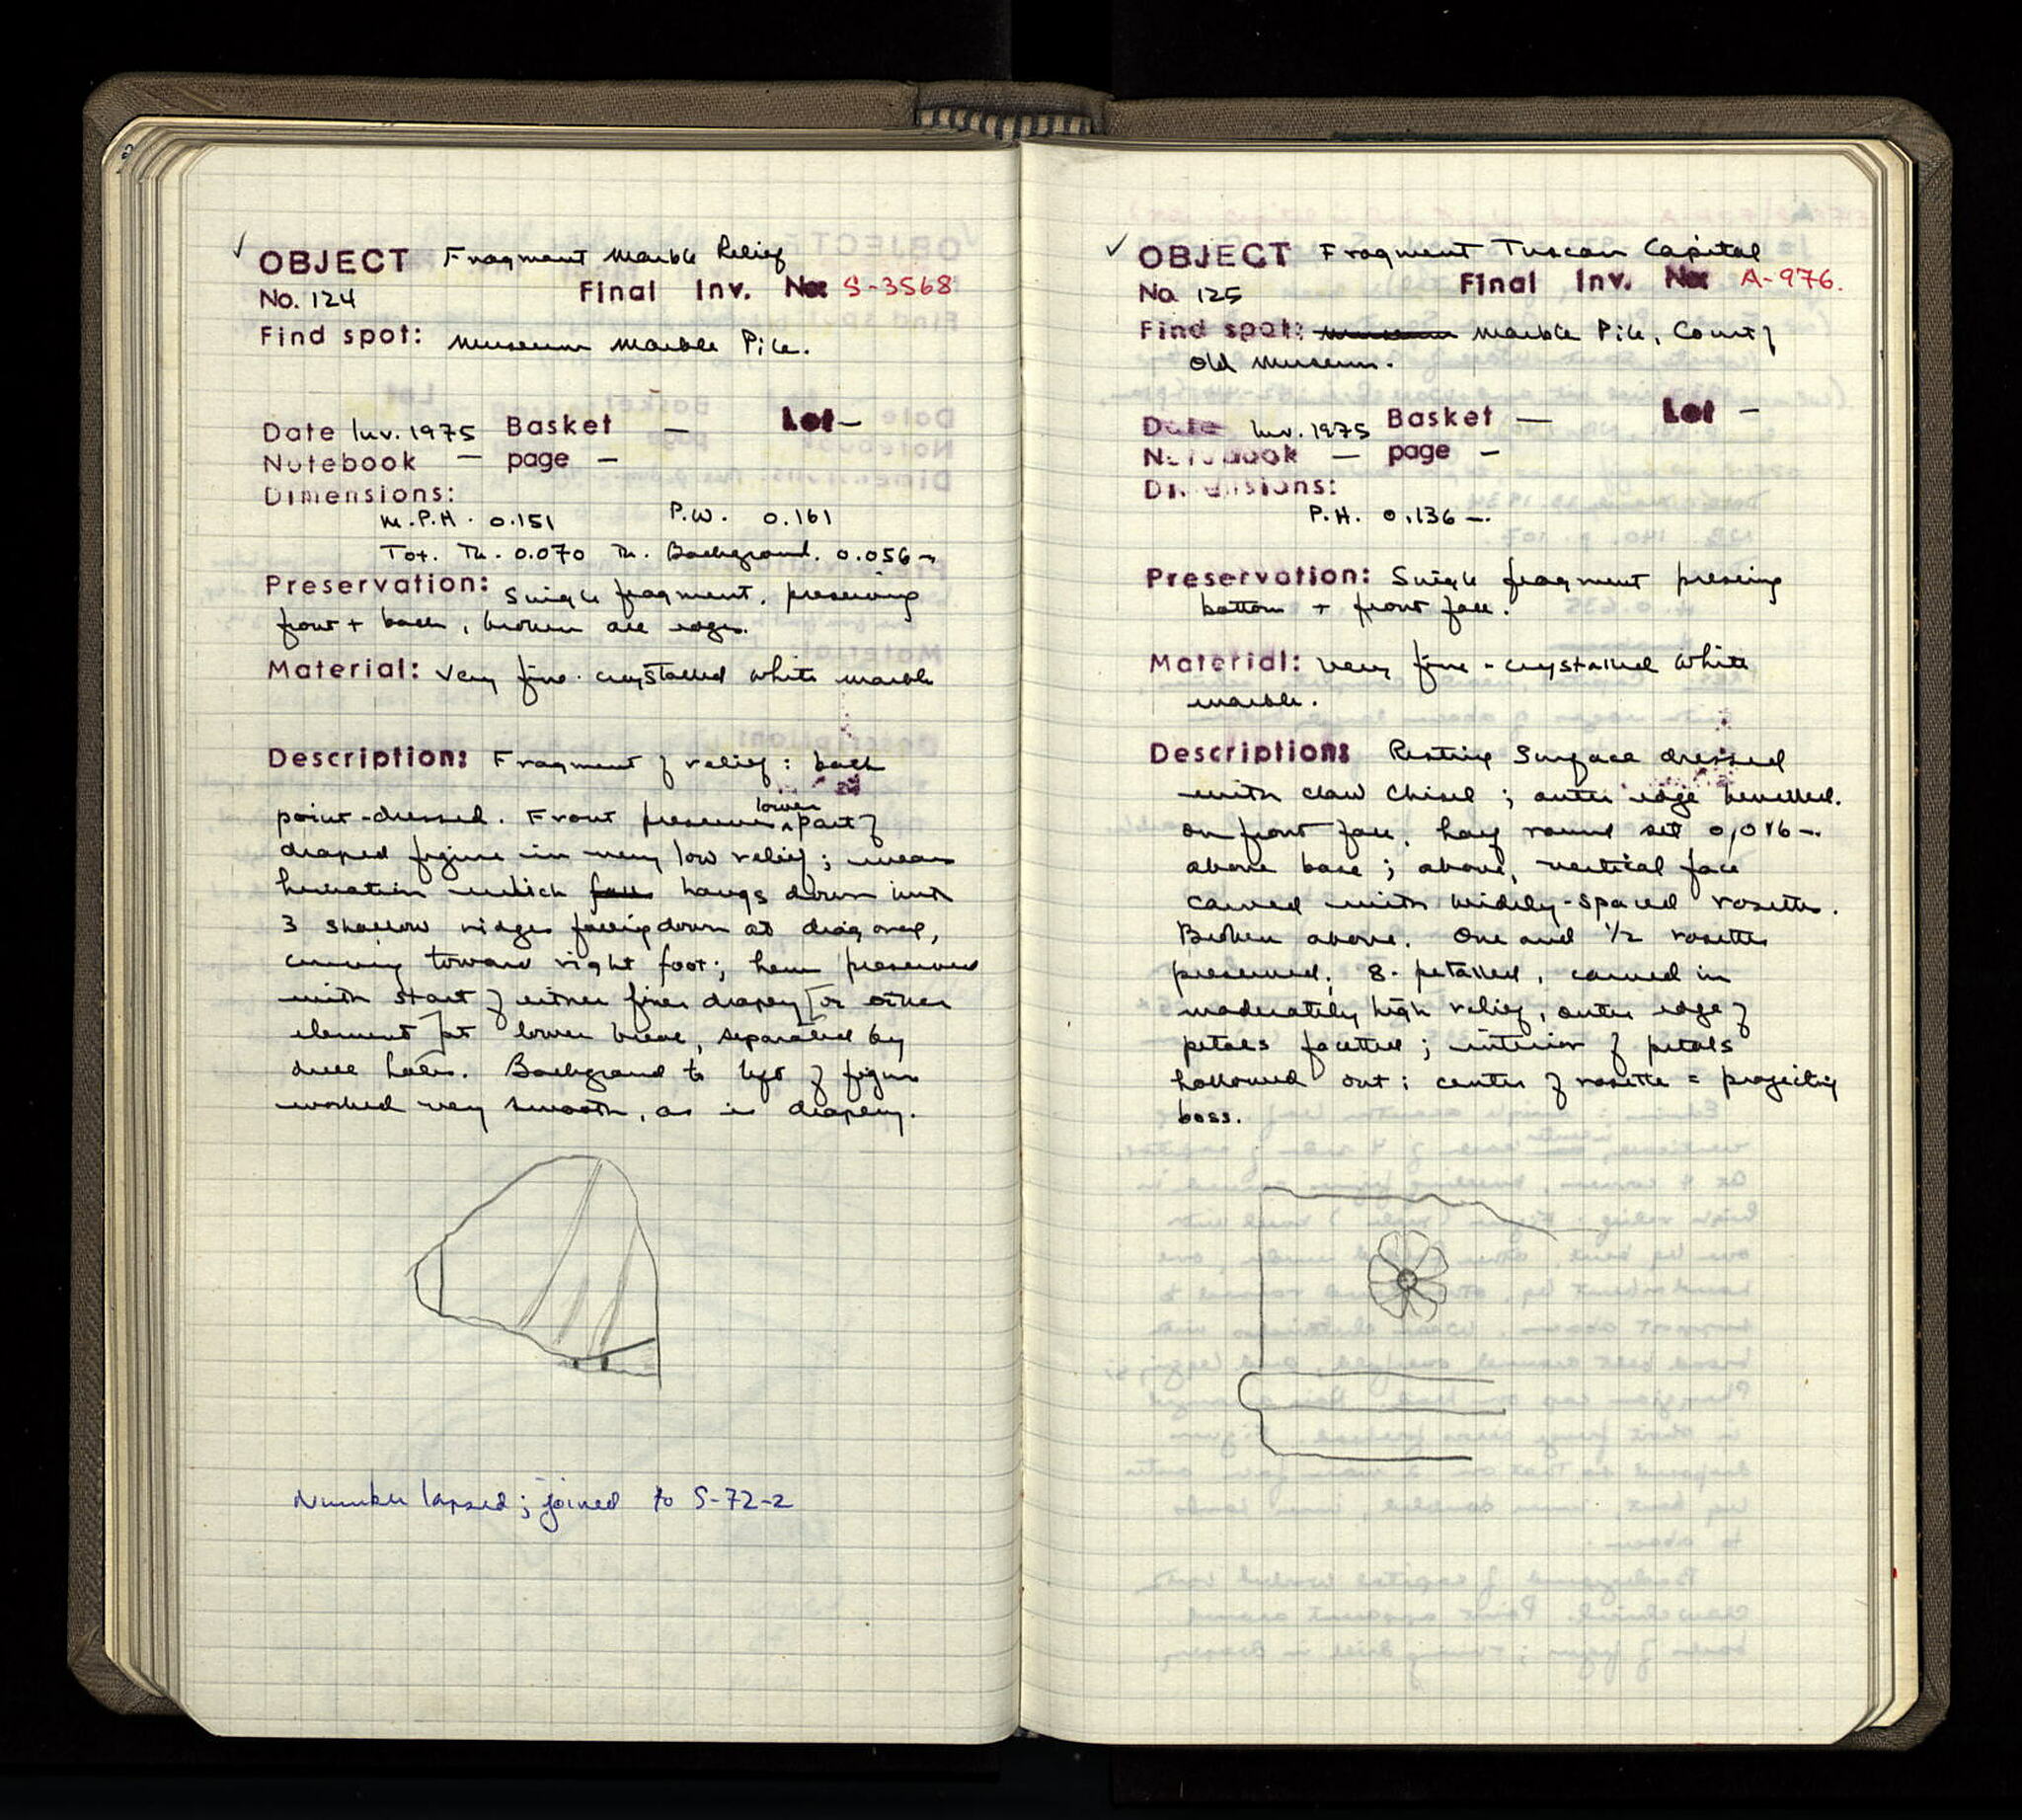 ✓ OBJECT Fragment Marble Relief
No. 124 Final Inv. No: S-3568
Find spot: Museum Marble Pile.
Date Inv. 1975 Basket — Lot —
Notebook — page —
Dimensions:
M.P.H. 0.151 P.W. 0.161
Tot. Th. 0.070 Th. Background. 0.056 m
Preservation: Single fragment, preserving
front + back, broken all edges.
Material: Very fine-crystalled white marble
Description: Fragment of relief: back
point-dressed. Front preserves lower part of
draped figure in very low relief; wears
himation which falls hangs down with
3 shallow ridges falling down at diagonal,
curving toward right foot; hem preserved
with start of either finer drapery [or other
element] at lower break, separated by
drill holes. Background to left of figure
worked very smooth, as is drapery.
Number lapsed; joined to S-72-2
✓ OBJECT Fragment Tuscan Capital
No. 125 Final Inv. No: A-976.
Find spot: Museum Marble Pile, Court of
Old Museum.
Date Inv. 1975 Basket — Lot —
Notebook — page —
Dimensions:
P.H. 0.136 m.
Preservation: Single fragment preserving
bottom + front face.
Material: Very fine-crystalled white
marble.
Description: Resting Surface dressed
with claw chisel; outer edge bevelled.
On front face, half round set 0,016 m.
above base; above, vertical face
carved with widely-spaced rosettes.
Broken above. One and 1/2 rosettes
preserved; 8-petalled, carved in
moderately high relief, outer edge of
petals facetted; interior of petals
hollowed out; center of rosette = projecting
boss.